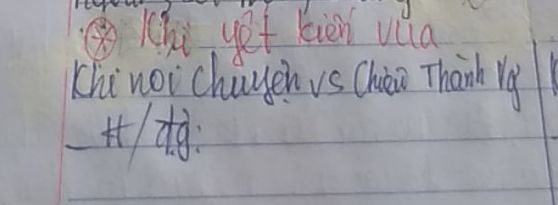 Khi yết kiến vua
Khi nói chuyện vs Chiêu Thành Vg
_ tt/đg: